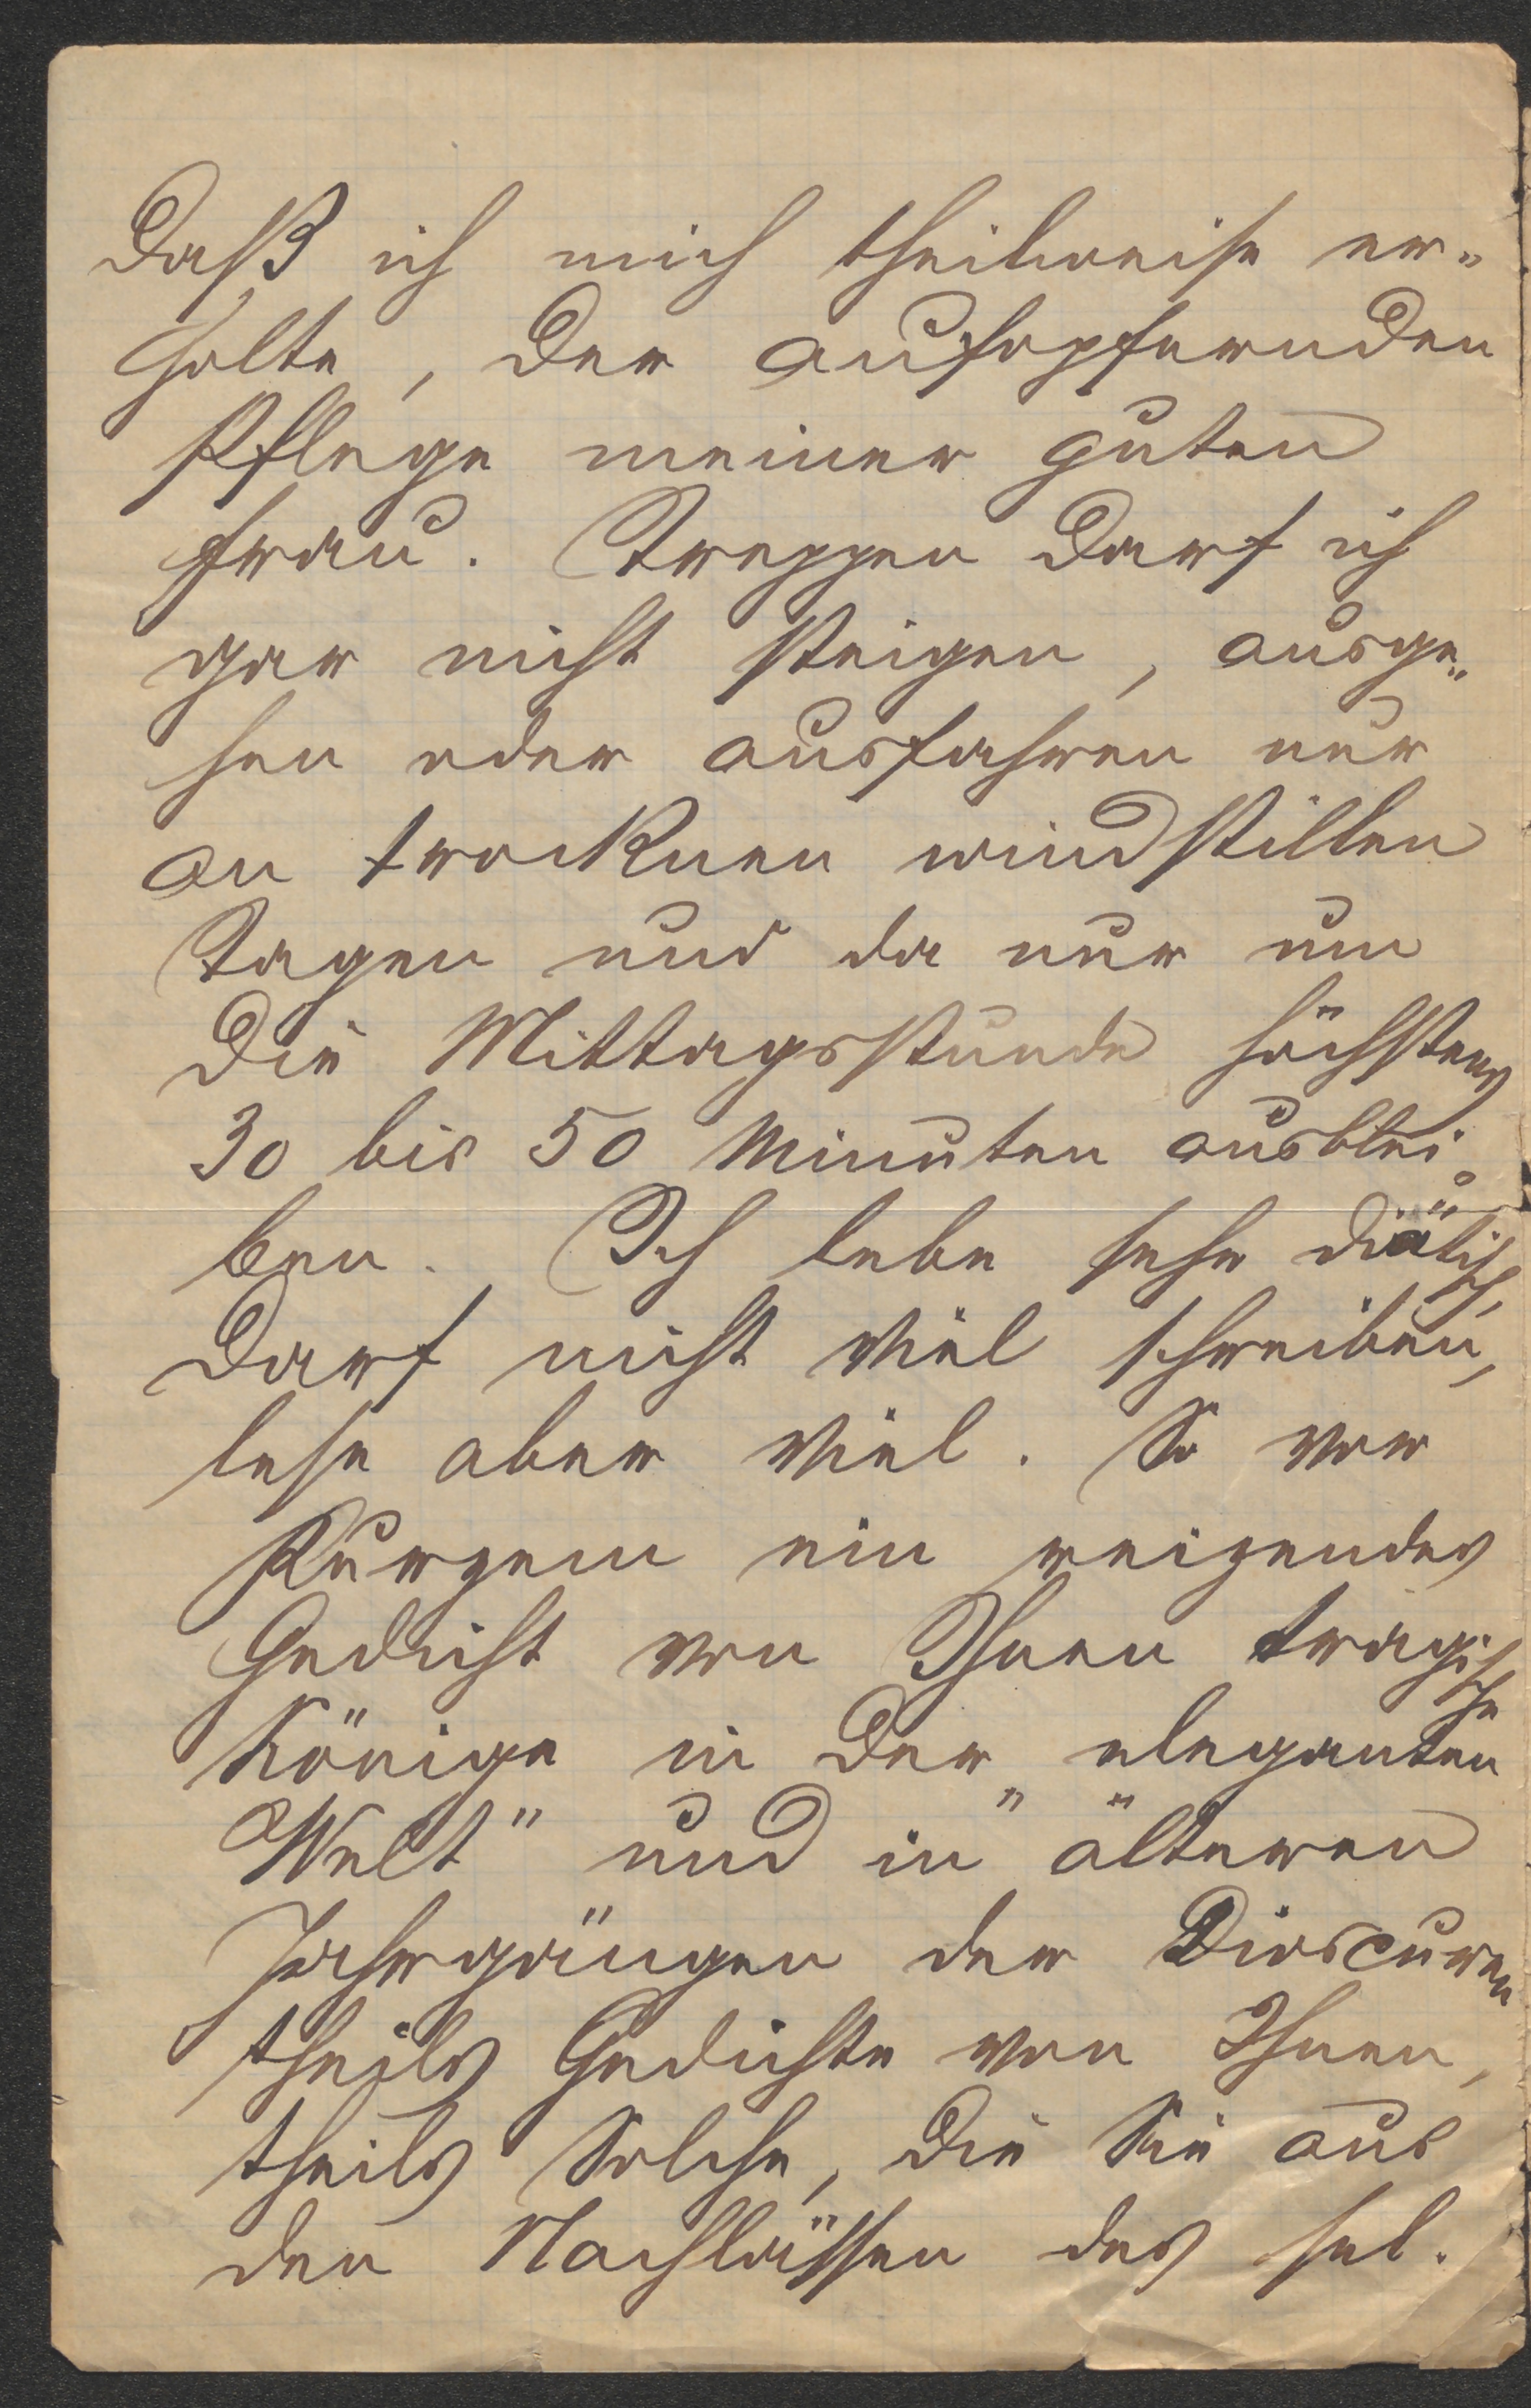 daß ich mich theilweise er-
holte, der aufopfernden
Pflege meiner guten
Frau. Treppen darf ich
gar nicht steigen, ausge-
hen oder ausfahren nur
an trocknen windstillen
Tagen und da nur um
die Mittagsstunde höchstens
30 bis 50 Minuten ausblei-
ben. Ich lebe sehr diätisch,
darf nicht viel schreiben,
lese aber viel. So vor
Kurzem ein reizendes
Gedicht von Ihnen tragische
Könige in der „eleganten
Welt" und in älteren
Jahrgängen der Dioscuren
theils Gedichte von Ihnen,
theils Solche, die Sie aus
den Nachlässen des sel.